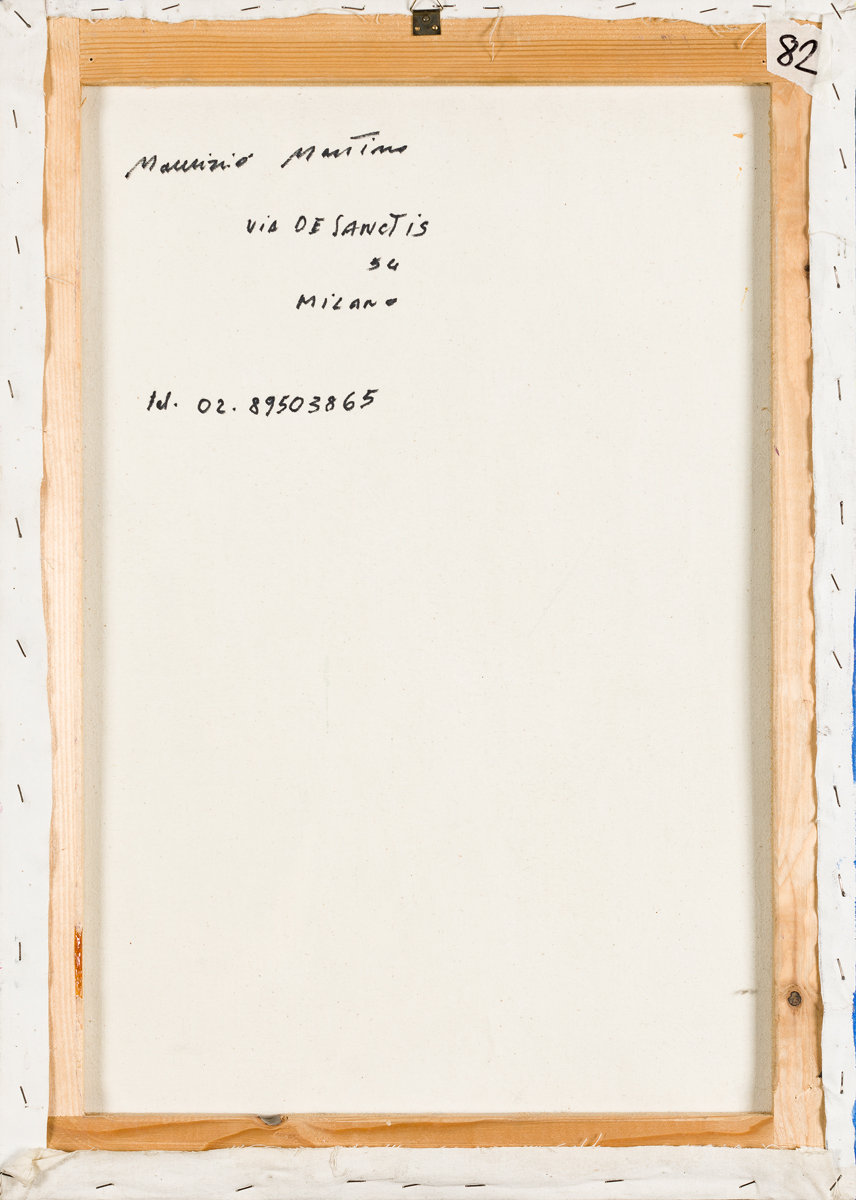 82
Maurizio Martino
via DE SANCTIS
54
MILANO
tel. 02.89503865